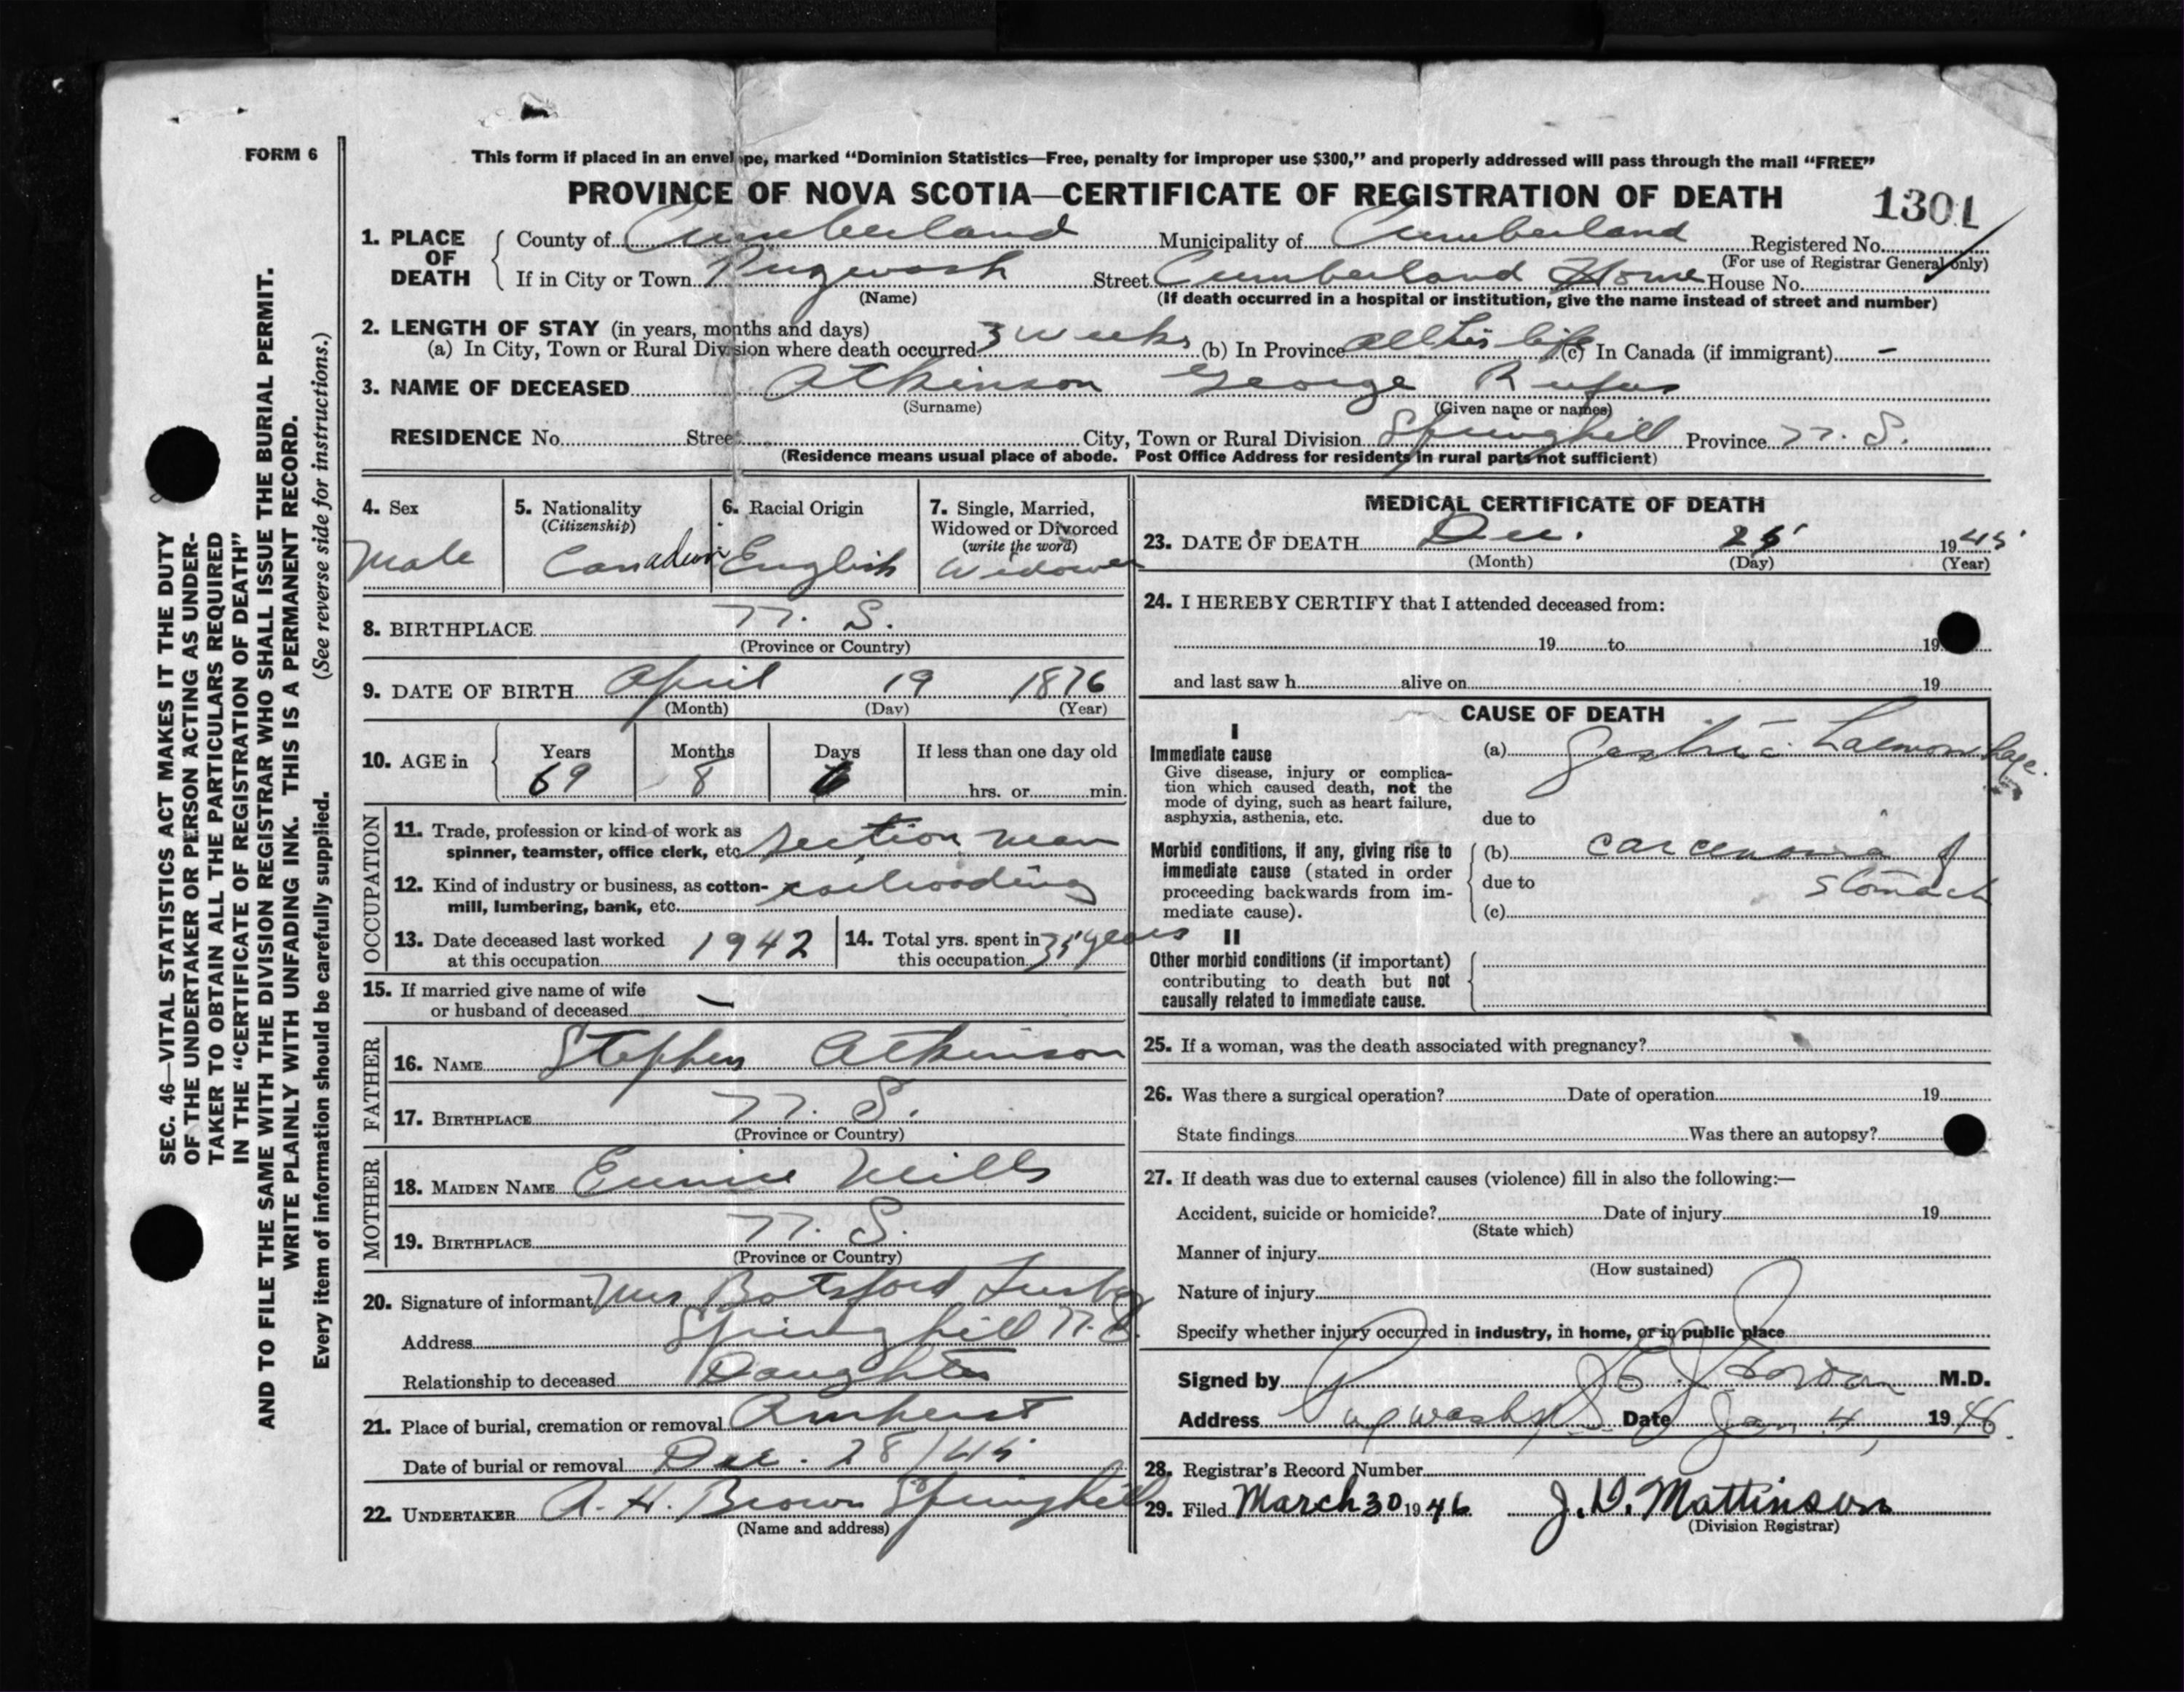 FORM 6
This form if placed in an envelope, marked "Dominion Statistics—Free, penalty for improper use $300," and properly addressed will pass through the mail "FREE"
PROVINCE OF NOVA SCOTIA—CERTIFICATE OF REGISTRATION OF DEATH
1301
1. PLACE OF DEATH
County of Cumberland Municipality of Cumberland Registered No.
(For use of Registrar General only)
If in City or Town Pugwash Street Cumberland Home House No.
(Name) (If death occurred in a hospital or institution, give the name instead of street and number)
2. LENGTH OF STAY (in years, months and days)
(a) In City, Town or Rural Division where death occurred 3 weeks (b) In Province all his life (c) In Canada (if immigrant) -
3. NAME OF DECEASED Atkinson George Rufus
(Surname) (Given name or names)
RESIDENCE No. Street City, Town or Rural Division Springhill Province N. S.
(Residence means usual place of abode. Post Office Address for residents in rural parts not sufficient)
4. Sex
Male
5. Nationality
(Citizenship)
Canadian
6. Racial Origin
English
7. Single, Married,
Widowed or Divorced
(write the word)
Widower
8. BIRTHPLACE N. S.
(Province or Country)
9. DATE OF BIRTH April 19 1876
(Month) (Day) (Year)
10. AGE in
Years Months Days If less than one day old
69 8 6 hrs. or min.
OCCUPATION
11. Trade, profession or kind of work as
spinner, teamster, office clerk, etc. section man
12. Kind of industry or business, as cotton-
mill, lumbering, bank, etc. railroading
13. Date deceased last worked
at this occupation 1942
14. Total yrs. spent in
this occupation 35 years
15. If married give name of wife
or husband of deceased —
FATHER
16. NAME Stephen Atkinson
17. BIRTHPLACE N. S.
(Province or Country)
MOTHER
18. MAIDEN NAME Eunice Mills
19. BIRTHPLACE N. S.
(Province or Country)
20. Signature of informant Mrs Botsford Lusby
Address Springhill N.S.
Relationship to deceased Daughter
21. Place of burial, cremation or removal Amherst
Date of burial or removal Dec. 28/45
22. UNDERTAKER A. H. Brown Springhill
(Name and address)
MEDICAL CERTIFICATE OF DEATH
23. DATE OF DEATH Dec. 25 1945
(Month) (Day) (Year)
24. I HEREBY CERTIFY that I attended deceased from:
19 to 19
and last saw h alive on 19
CAUSE OF DEATH
I
Immediate cause
Give disease, injury or complica-
tion which caused death, not the
mode of dying, such as heart failure,
asphyxia, asthenia, etc.
(a) Gastric haemorrhage.
due to
Morbid conditions, if any, giving rise to
immediate cause (stated in order
proceeding backwards from im-
mediate cause).
(b) carcenoma of
due to stomach
(c)
II
Other morbid conditions (if important)
contributing to death but not
causally related to immediate cause.
25. If a woman, was the death associated with pregnancy?
26. Was there a surgical operation? Date of operation 19
State findings Was there an autopsy?
27. If death was due to external causes (violence) fill in also the following:—
Accident, suicide or homicide? Date of injury 19
(State which)
Manner of injury
(How sustained)
Nature of injury
Specify whether injury occurred in industry, in home, or in public place
Signed by M.D.
Address Pugwash NS Date Jan 4, 1946.
28. Registrar's Record Number
29. Filed March 30 1946 J. D. Mattinson
(Division Registrar)
SEC. 46—VITAL STATISTICS ACT MAKES IT THE DUTY
OF THE UNDERTAKER OR PERSON ACTING AS UNDER-
TAKER TO OBTAIN ALL THE PARTICULARS REQUIRED
IN THE "CERTIFICATE OF REGISTRATION OF DEATH"
AND TO FILE THE SAME WITH THE DIVISION REGISTRAR WHO SHALL ISSUE THE BURIAL PERMIT.
WRITE PLAINLY WITH UNFADING INK. THIS IS A PERMANENT RECORD.
Every item of information should be carefully supplied. (See reverse side for instructions.)